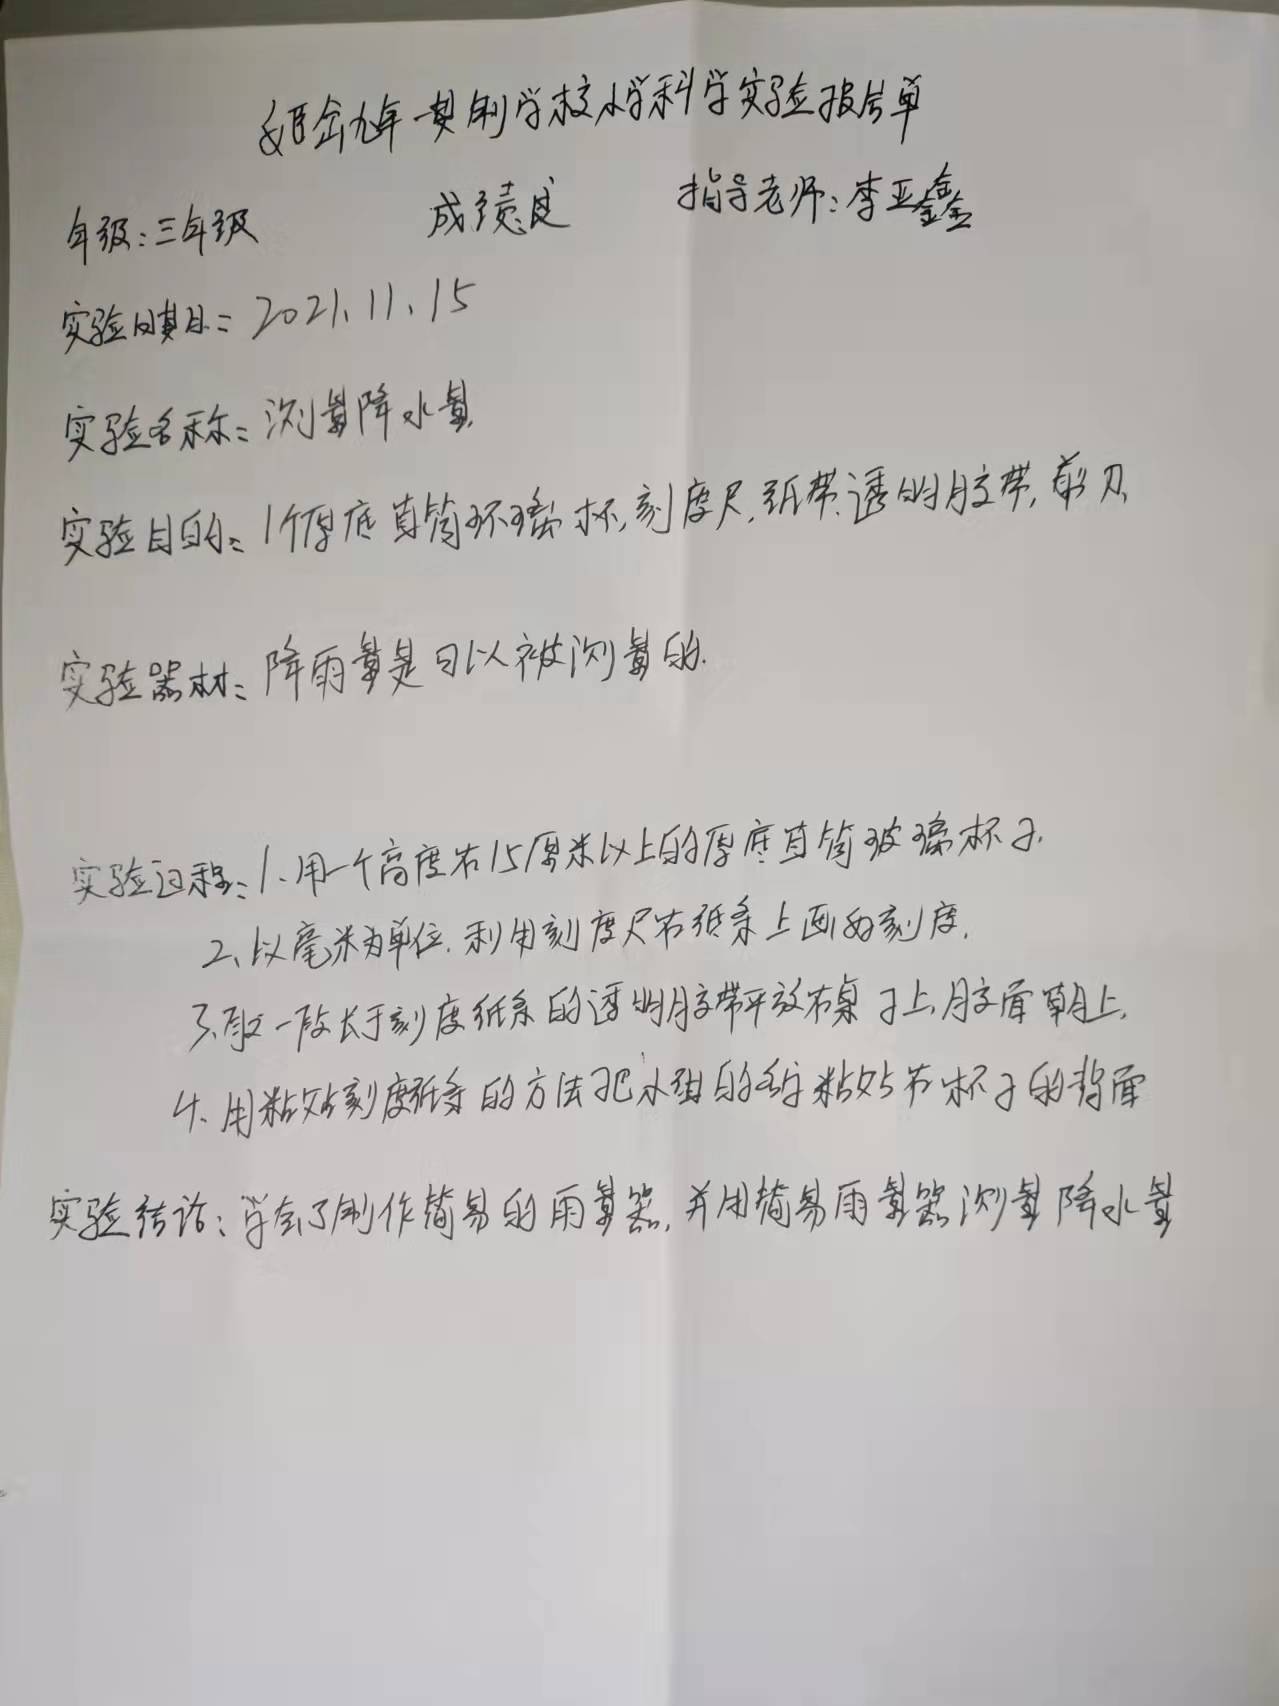 姬岔九年一贯制学校小学科学实验报告单
年级:三年级 成绩:良 指导老师:李亚鑫
实验日期日:2021.11.15
实验名称:测量降水量
实验目的:1个厚底直筒玻璃杯,刻度尺,纸带,透明胶带,剪刀
实验器材:降雨量是可以被测量的.
实验过程:1、用一个高度在15厘米以上的厚底直筒玻璃杯子.
2、以毫米为单位.利用刻度尺在纸条上画好刻度.
3.取一段长于刻度纸条的透明胶带平放在桌子上,胶面朝上.
4、用粘贴刻度纸条的方法把小组的名字粘贴在杯子的背面
实验结论:学会了制作简易的雨量器,并用简易雨量器测量降水量